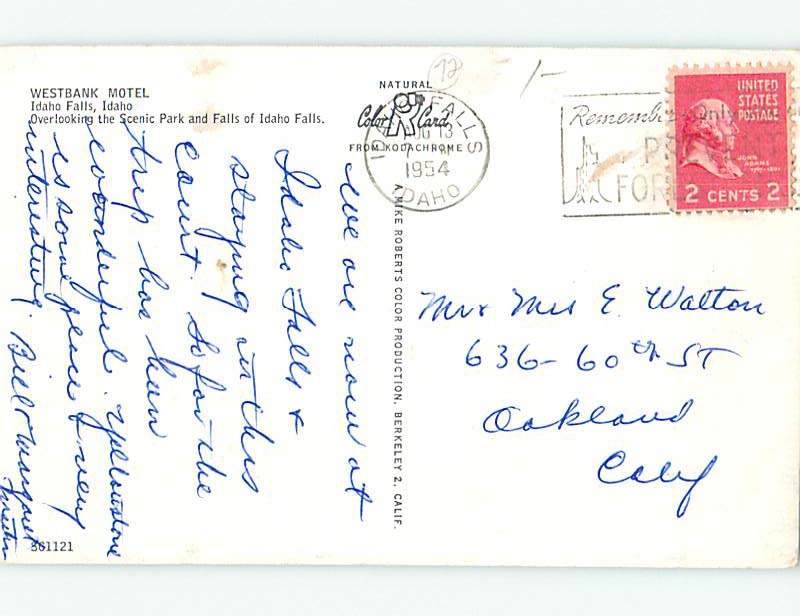 WESTBANK MOTEL
Idaho Falls, Idaho
Overlooking the Scenic Park and Falls of Idaho Falls.
We are now at
Idaho Falls &
staying in this
court. So far the
trip has been
wonderful. Yellowstone
is some place & very
interesting. Bill & Margaret
561121
NATURAL
Color Card
FROM KODACHROME
A MIKE ROBERTS COLOR PRODUCTION, BERKELEY 2, CALIF.
72
1-
IDAHO FALLS
AUG 13
1954
IDAHO
Remember Only
FOR
UNITED
STATES
POSTAGE
JOHN
ADAMS
1797-1801
2 CENTS 2
Mr & Mrs E. Walton
636-60th ST
Oakland
Calif